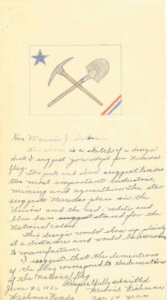 Hon. Maurice J. Sullivan
is a sketch of a design
that I suggest you adopt for Nevada's
flag. The pick and shovel suggest Nevada's
two most important industries,
mining and agriculture. The star
suggests Nevada's place in the
Union and the red white and
blue bars suggest stand for the
National colors.
This design would show up plainly
at a distance and would be
to manufacture.
I suggest that the dimensions
of the flag correspond to the dimensions
of the National flag.
Respectfully submitted
June 21, 19
Nevada Age 15 years